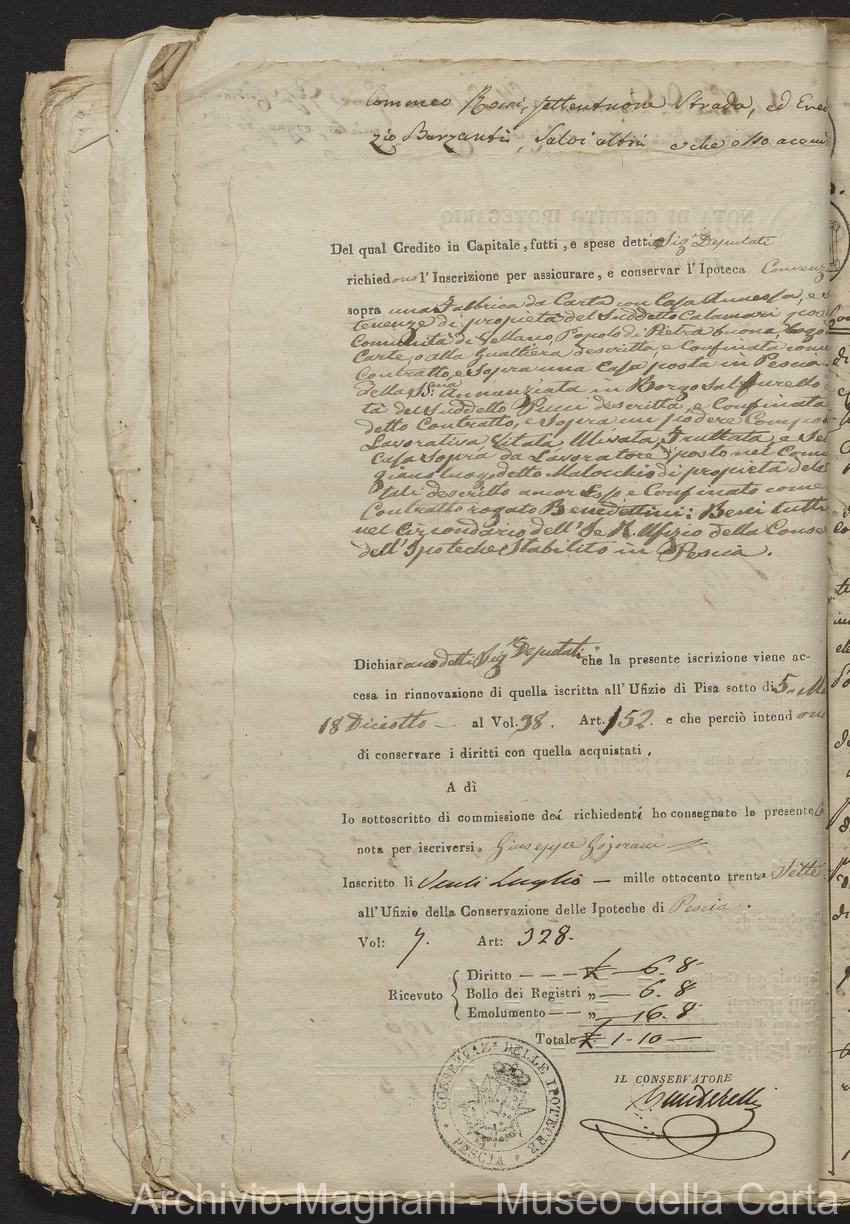 settentrione Strada, ed
zio Barzanti, Salvi altri e che esso acqui
Del qual Credito in Capitale, futti, e spese detti Sig.ri Deputati
richiedono l'Inscrizione per assicurare, e conservar l'Ipoteca
sopra una Fabbrica da Carta con Casa Annessa, e
tenenze di proprietà del Suddetto Calamari
Comunità di Vellano, Popolo di Pietra buona, Luogo
Carte, o alla Gualtiera descritta, e Confinata come
Contratto, e Sopra una Casa posta in Pescia
della SS.ma Annunziata in Borgo
tà del Suddetto Pucci descritta, e Confinata
detto Contratto, e Sopra un podere Compos
Lavorativa Vitata Ulivata, Fruttata, e
Casa Sopra da Lavoratore posto nel Com
luogo detto Malocchio di proprietà del
tati descritto ancor Esso, e Confinato come
Contratto rogato Benedettini: Beni tutti
nel Circondario dell'I. e R. Ufizio della Conse
dell'Ipoteche Stabilito in Pescia.
Dichiarano detti Sig.ri Deputati che la presente iscrizione viene ac-
cesa in rinnovazione di quella iscritta all'Ufizio di Pisa sotto di 5.
18 Diciotto — al Vol. 38. Art. 152. e che perciò intendono
di conservare i diritti con quella acquistati.
A dì
Io sottoscritto di commissione dei richiedenti ho consegnato la presente
nota per iscriversi. Giuseppe
Inscritto li Venti Luglio — mille ottocento trenta Sette
all'Ufizio della Conservazione delle Ipoteche di Pescia.
Vol: 7. Art: 328.
Ricevuto
Diritto — — — £ — 6. 8
Bollo dei Registri „ — 6. 8
Emolumento — — „ — 16. 8
Totale £ 1-10 —
IL CONSERVATORE
CONSERVAZ. DELLE IPOTECHE
PESCIA
Archivio Magnani - Museo della Carta